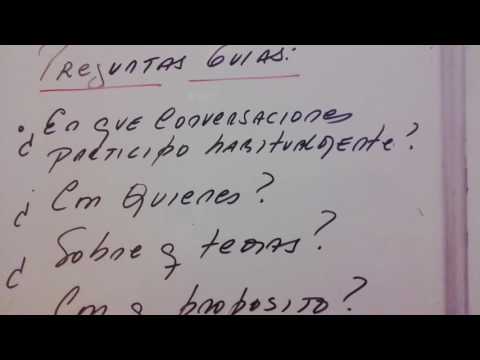 Preguntas Guias:
¿En que conversaciones
participo habitualmente?
¿Con Quienes?
¿Sobre q temas?
Con q proposito?